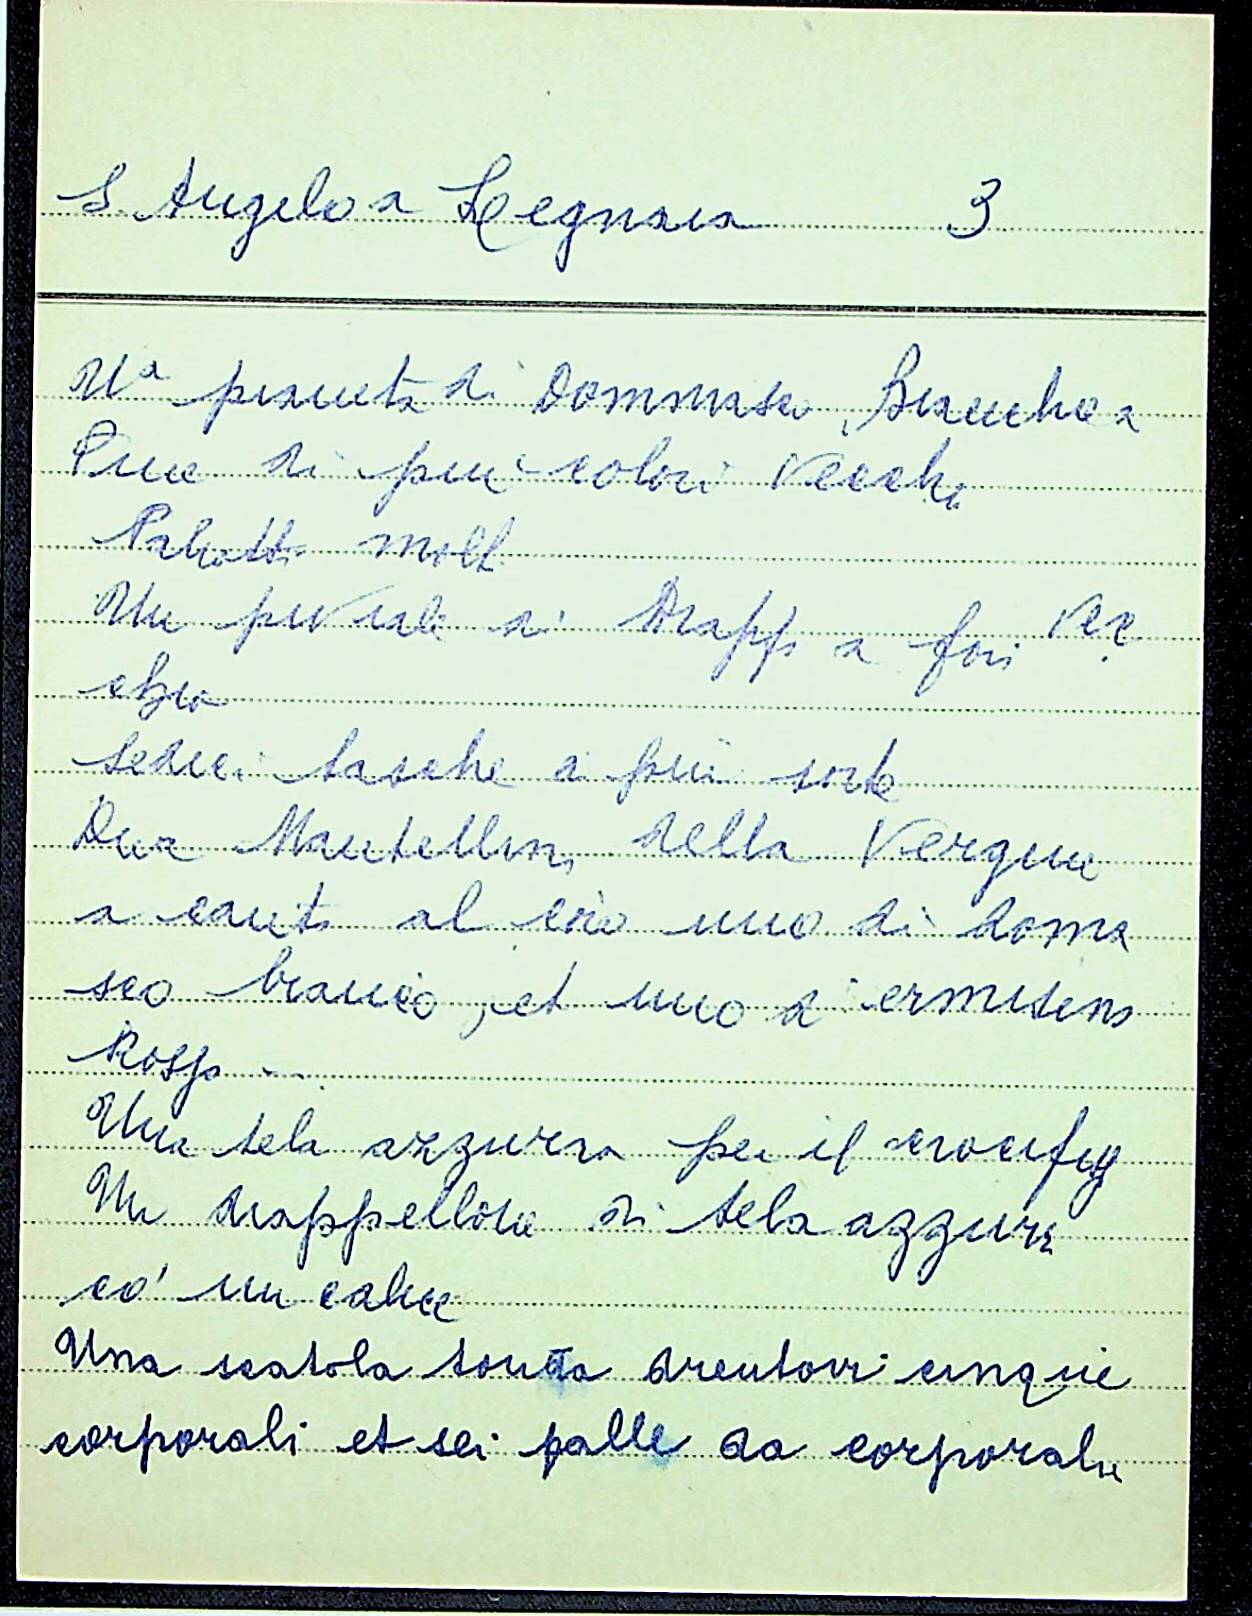 S. Angelo a Legnaia 3
Una pianeta di Dommasco Bianche a
di più colori vecchi
Paliotti molti
Un piviale di Drappo a fiori vec
chio
sedici tasche di più sorte
Dua Mantellini della Vergine
a canto al uno di doma
sco bianco, et uno di ermisino
Rosso
Una tela azzurra per il crocifisso
Un drappellone di tela azzurra
co' un calice
Una scatola tonda drentovi cinque
corporali et sei palle da corporali